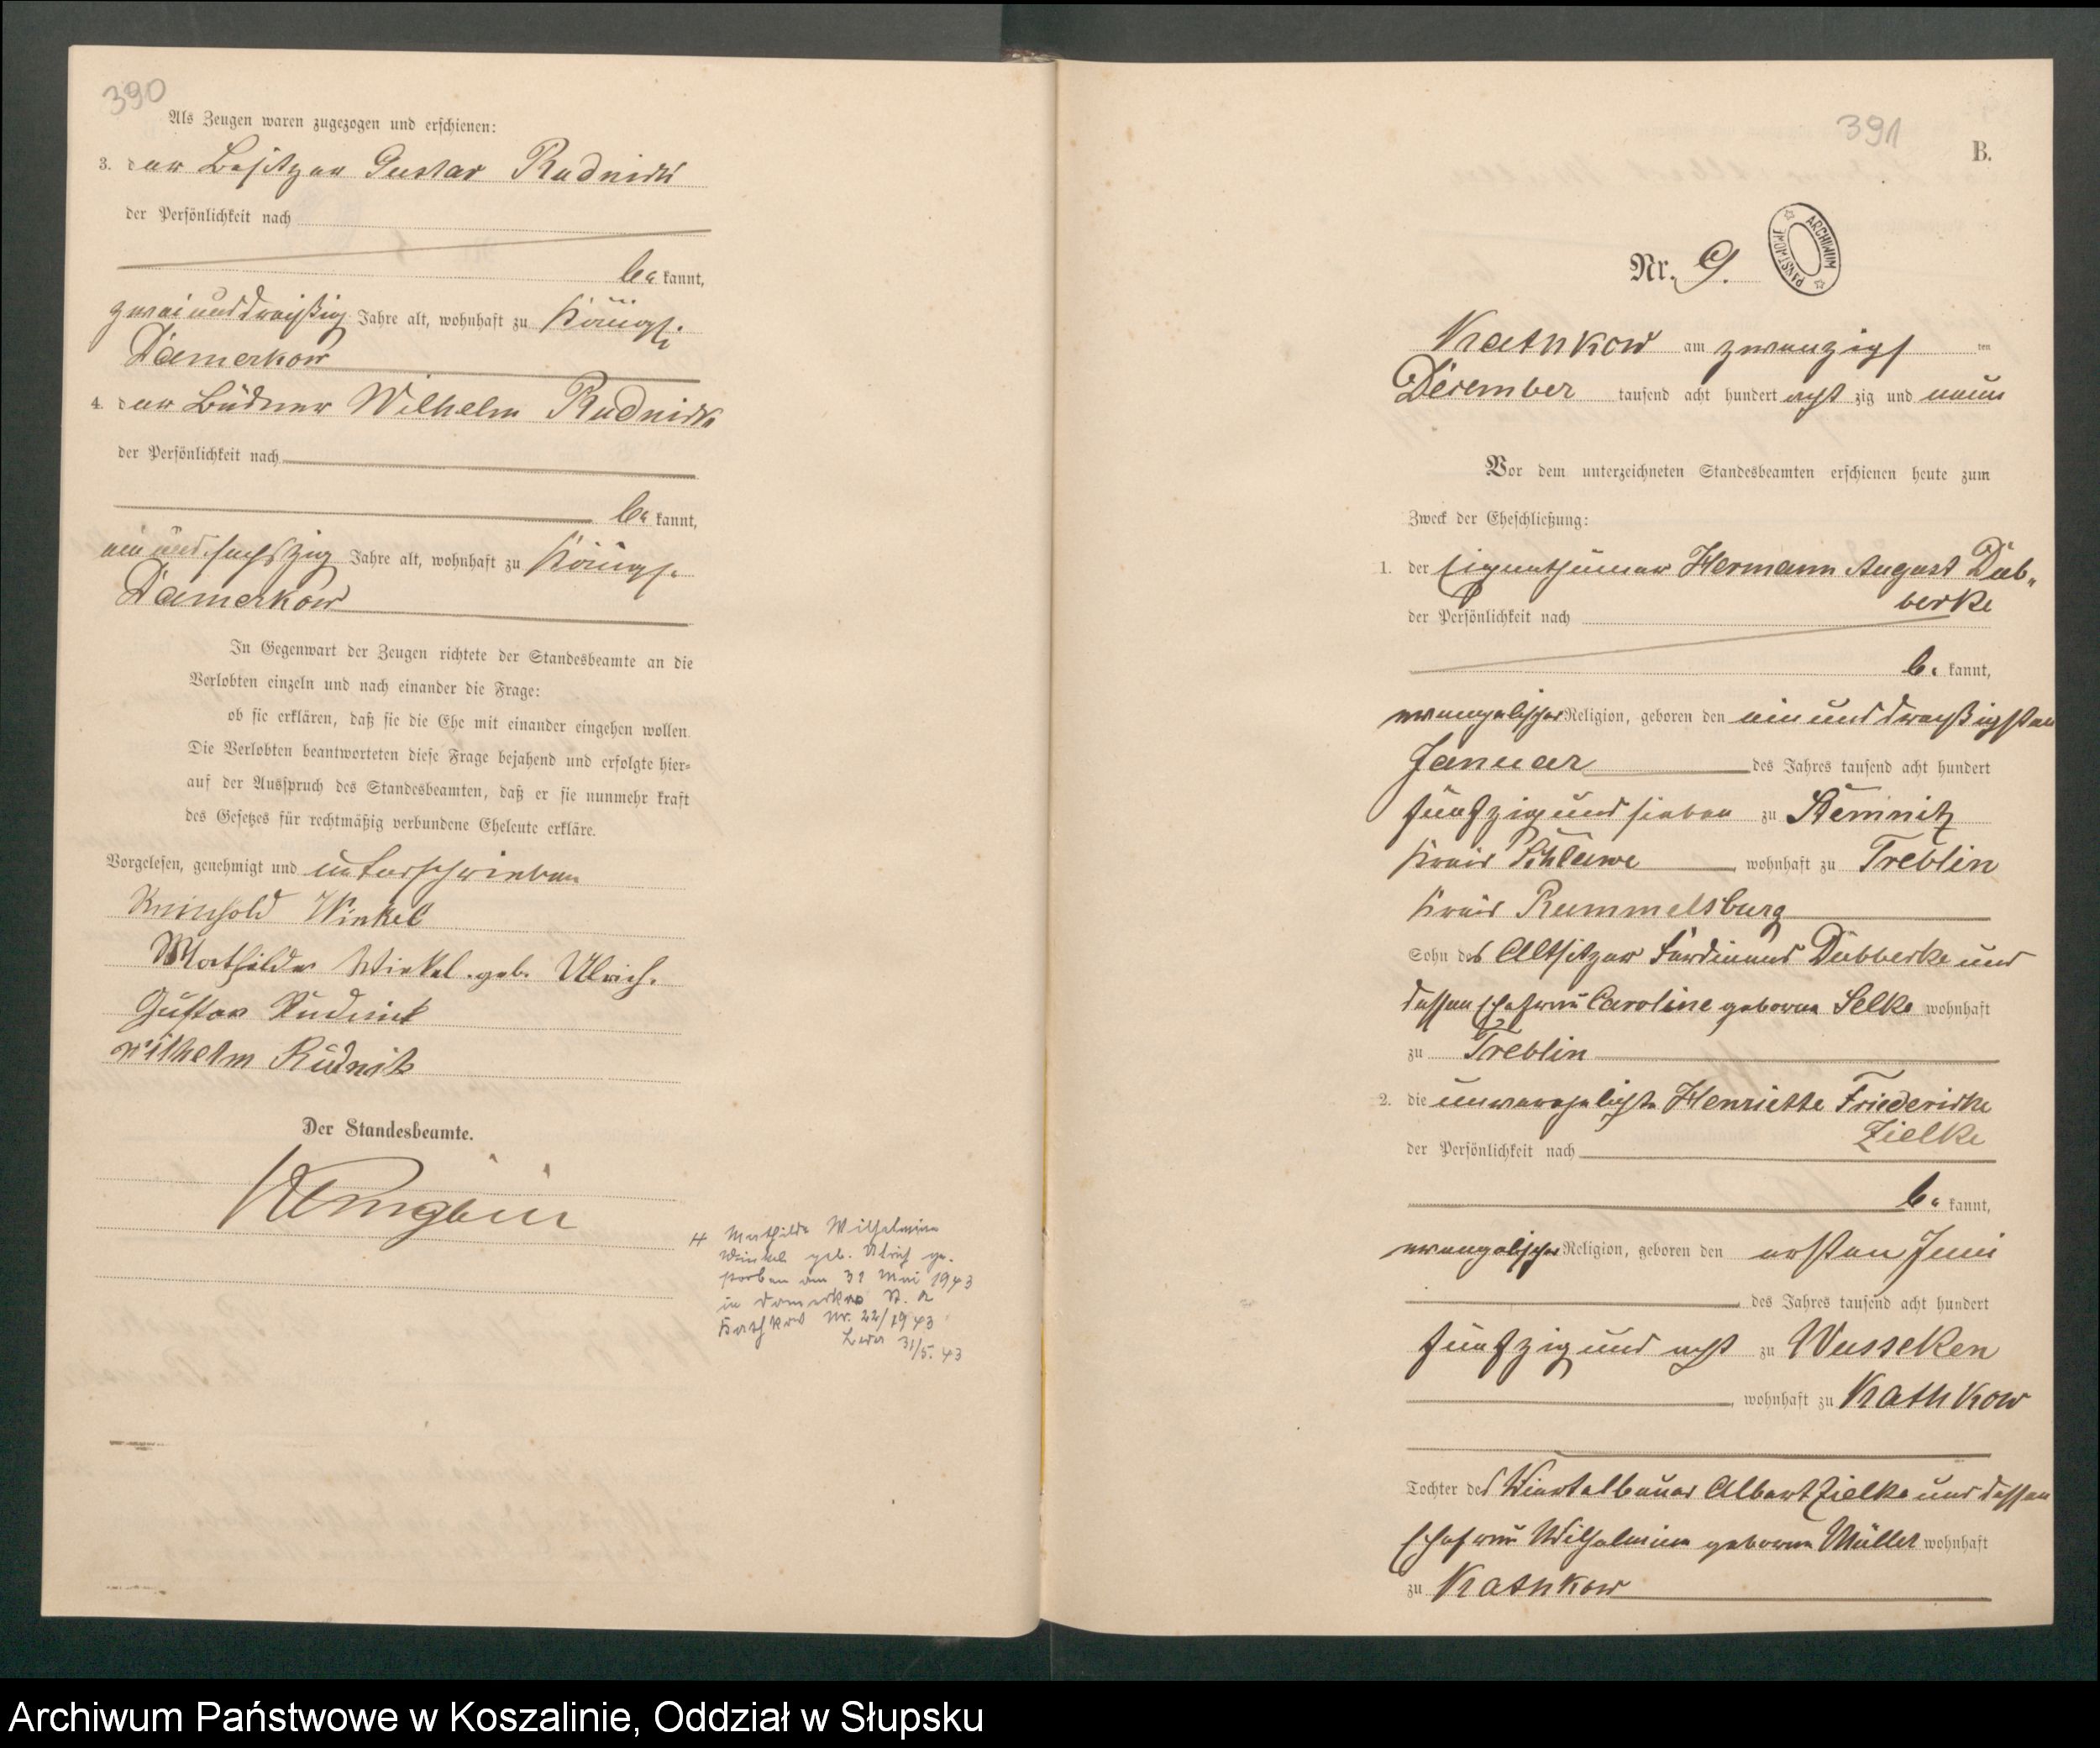 390
Als Zeugen waren zugezogen und erschienen:
3. der Besitzer Gustav Rudnick
der Persönlichkeit nach
be kannt,
zweiunddreißig Jahre alt, wohnhaft zu Königl.
Damerkow
4. der Büdner Wilhelm Rudnick
der Persönlichkeit nach
be kannt,
ein und sechszig Jahre alt, wohnhaft zu Königl.
Damerkow
In Gegenwart der Zeugen richtete der Standesbeamte an die
Verlobten einzeln und nach einander die Frage:
ob sie erklären, daß sie die Ehe mit einander eingehen wollen.
Die Verlobten beantworteten diese Frage bejahend und erfolgte hier-
auf der Ausspruch des Standesbeamten, daß er sie nunmehr kraft
des Gesetzes für rechtmäßig verbundene Eheleute erkläre.
Vorgelesen, genehmigt und unterschrieben
Reinhold Winkel
Mathilde Winkel geb. Ulrich.
Gustav Rudnick
Wilhelm Rudnick
Der Standesbeamte.
H Mathilde Wilhelmine
Winkel geb. Ulrich ge-
storben am 31 Mai 1943
in Damerkow St. A
Kathkow Nr. 22/1943
31/5. 43
391
B.
ARCHIWUM PAŃSTWOWE
Nr. 9.
Kathkow am zwanzigs ten
Dezember tausend acht hundert acht zig und neun
Vor dem unterzeichneten Standesbeamten erschienen heute zum
Zweck der Eheschließung:
1. der Eigenthümer Hermann August Dub-
berke
der Persönlichkeit nach
be kannt,
evangelischer Religion, geboren den ein und dreißigsten
Januar des Jahres tausend acht hundert
fünfzig und sieben zu Stemnitz
Kreis Schlawe wohnhaft zu Treblin
Kreis Rummelsburg
Sohn des Altsitzer Ferdinand Dubberke und
dessen Ehefrau Caroline geborne Selke wohnhaft
zu Treblin
2. die unverehelichte Henriette Friedericke
Zielke
der Persönlichkeit nach
be kannt,
evangelischer Religion, geboren den ersten Juni
des Jahres tausend acht hundert
fünfzig und acht zu Wusseken
wohnhaft zu Kathkow
Tochter des Viertelbauer Albert Zielke und dessen
Ehefrau Wilhelmine geborne Müller wohnhaft
zu Kathkow
Archiwum Państwowe w Koszalinie, Oddział w Słupsku